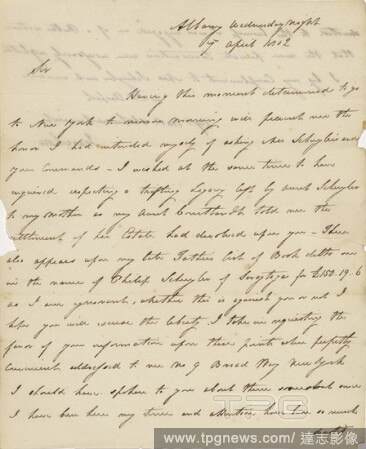 Albany Wednesday night
7th April 1802
Sir
Having this moment determined to go
to New York to morrow morning will prevent me the
honor I had intended myself of asking Mrs Schuyler and
your Commands - I wished at the same time to have
enquired respecting a trifling Legacy left by aunt Schuyler
to my Mother as my Aunt Courtlandt told me the
settlement of her Estate had devolved upon you - There
also appears upon my late Father's list of Book debts one
in the name of Philip Schuyler of Saratoga for £150.19.6
as I am ignorant, whether this is against you or not I
hope you will excuse the liberty I take in requesting the
favor of your information upon these points when perfectly
Convenient addressed to me No 9 Broad Way New York
I should have spoken to you about these
I have been here my time and have been so much
TPG
www.tpgnews.com / 達志影像